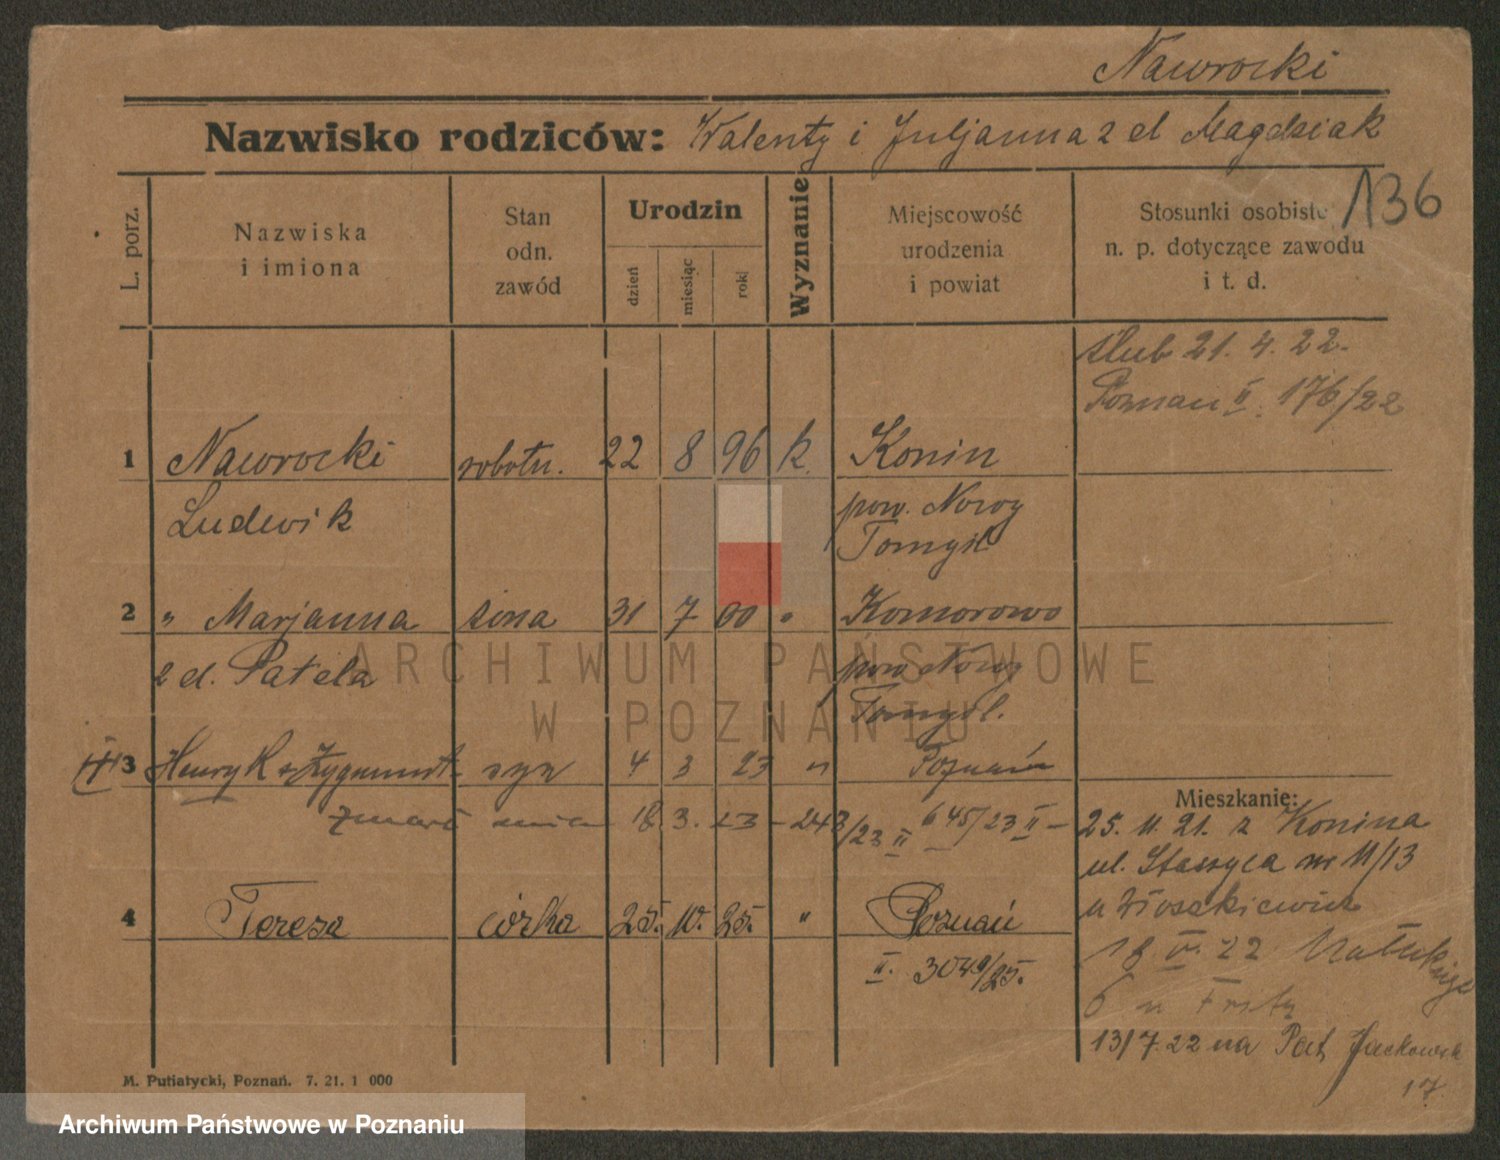 Nawrocki
Nazwisko rodziców: Walenty i Juljanna z d Magdziak
136
L. porz.
Nazwiska
i imiona
Stan
odn.
zawód
Urodzin
dzień
miesiąc
rok
Wyznanie
Miejscowość
urodzenia
i powiat
Stosunki osobiste
n. p. dotyczące zawodu
i t. d.
ślub 21. 4. 22.
Poznań II. 176/22
1 Nawrocki robotn. 22 8 96 k. Konin
Ludwik pow. Nowy
Tomyśl
2 " Marjanna żona 31 7 00 " Komorowo
z d. Patela pow Nowy
Tomyśl.
3 Henryk Zygmunt syn 4 3 23 " Poznań
645/23 II
zmarł 18 3. 23 - 243/23 II
4 Teresa córka 25. 10. 25. " Poznań
II. 3049/25.
Mieszkanie:
25. 11. 21. z Konina
ul. Staszyca nr 11/13
u
18 V. 22
6 u
13/7. 22 na Pat Jackowsk
17.
M. Putiatycki, Poznań. 7. 21. 1 000
ARCHIWUM PAŃSTWOWE
W POZNANIU
Archiwum Państwowe w Poznaniu